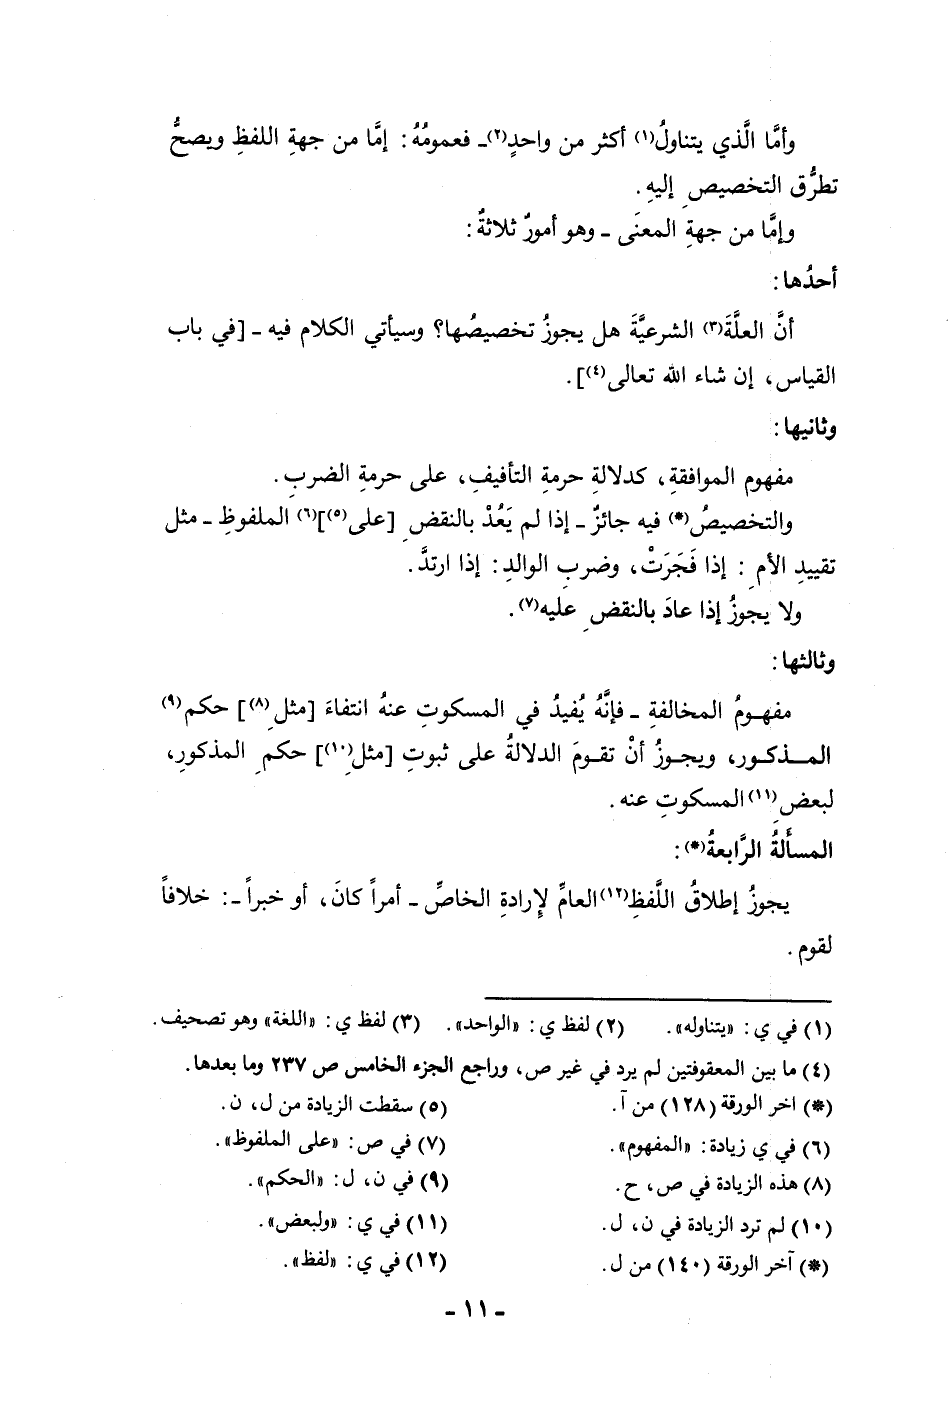 وأمَّا الَّذي يتناولُ(١) أكثر من واحدٍ(٢)ـ فعمومُهُ: إمَّا من جهةِ اللفظِ ويصحُّ
تطرُّق التخصيصِ إليهِ.
وإمَّا من جهةِ المعنَى ـ وهو أمورٌ ثلاثةٌ:
أحدُها:
أنَّ العلَّةَ(٣) الشرعيَّةَ هل يجوزُ تخصيصُها؟ وسيأتي الكلام فيه ـ [في باب
القياس، إن شاء الله تعالى(٤)].
وثانيها:
مفهوم الموافقةِ، كدلالةِ حرمةِ التأفيفِ، على حرمةِ الضربِ.
والتخصيصُ(*) فيه جائزٌ ـ إذا لم يَعُدْ بالنقضِ [على(٥)](٦) الملفوظِ ـ مثل
تقييدِ الأمِ: إذا فَجَرَتْ، وضربِ الوالدِ: إذا ارتدَّ.
ولا يجوزُ إذا عادَ بالنقضِ عليه(٧).
وثالثها:
مفهومُ المخالفةِ ـ فإنَّهُ يُفيدُ في المسكوتِ عنهُ انتفاءَ [مثلِ(٨)] حكم(٩)
المـذكـور، ويجـوزُ أنْ تقـومَ الدلالةُ على ثبوتِ [مثلِ(١٠)] حكمِ المذكورِ،
لبعضِ(١١) المسكوتِ عنه.
المسأَلةُ الرَّابعةُ(*):
يجوزُ إطلاقُ اللَّفظِ(١٢) العامِّ لإرادةِ الخاصِّ ـ أمراً كانَ، أو خبراً ـ: خلافاً
لقوم.
(١) في ي: «يتناوله». (٢) لفظ ي: «الواحد». (٣) لفظ ي: «اللغة» وهو تصحيف.
(٤) ما بين المعقوفتين لم يرد في غير ص، وراجع الجزء الخامس ص ٢٣٧ وما بعدها.
(*) اخر الورقة (١٢٨) من آ. (٥) سقطت الزيادة من ل، ن.
(٦) في ي زيادة: «المفهوم». (٧) في ص: «على الملفوظ».
(٨) هذه الزيادة في ص، ح. (٩) في ن، ل: «الحكم».
(١٠) لم ترد الزيادة في ن، ل. (١١) في ي: «ولبعض».
(*) آخر الورقة (١٤٠) من ل. (١٢) في ي: «لفظ».
ـ ١١ ـ